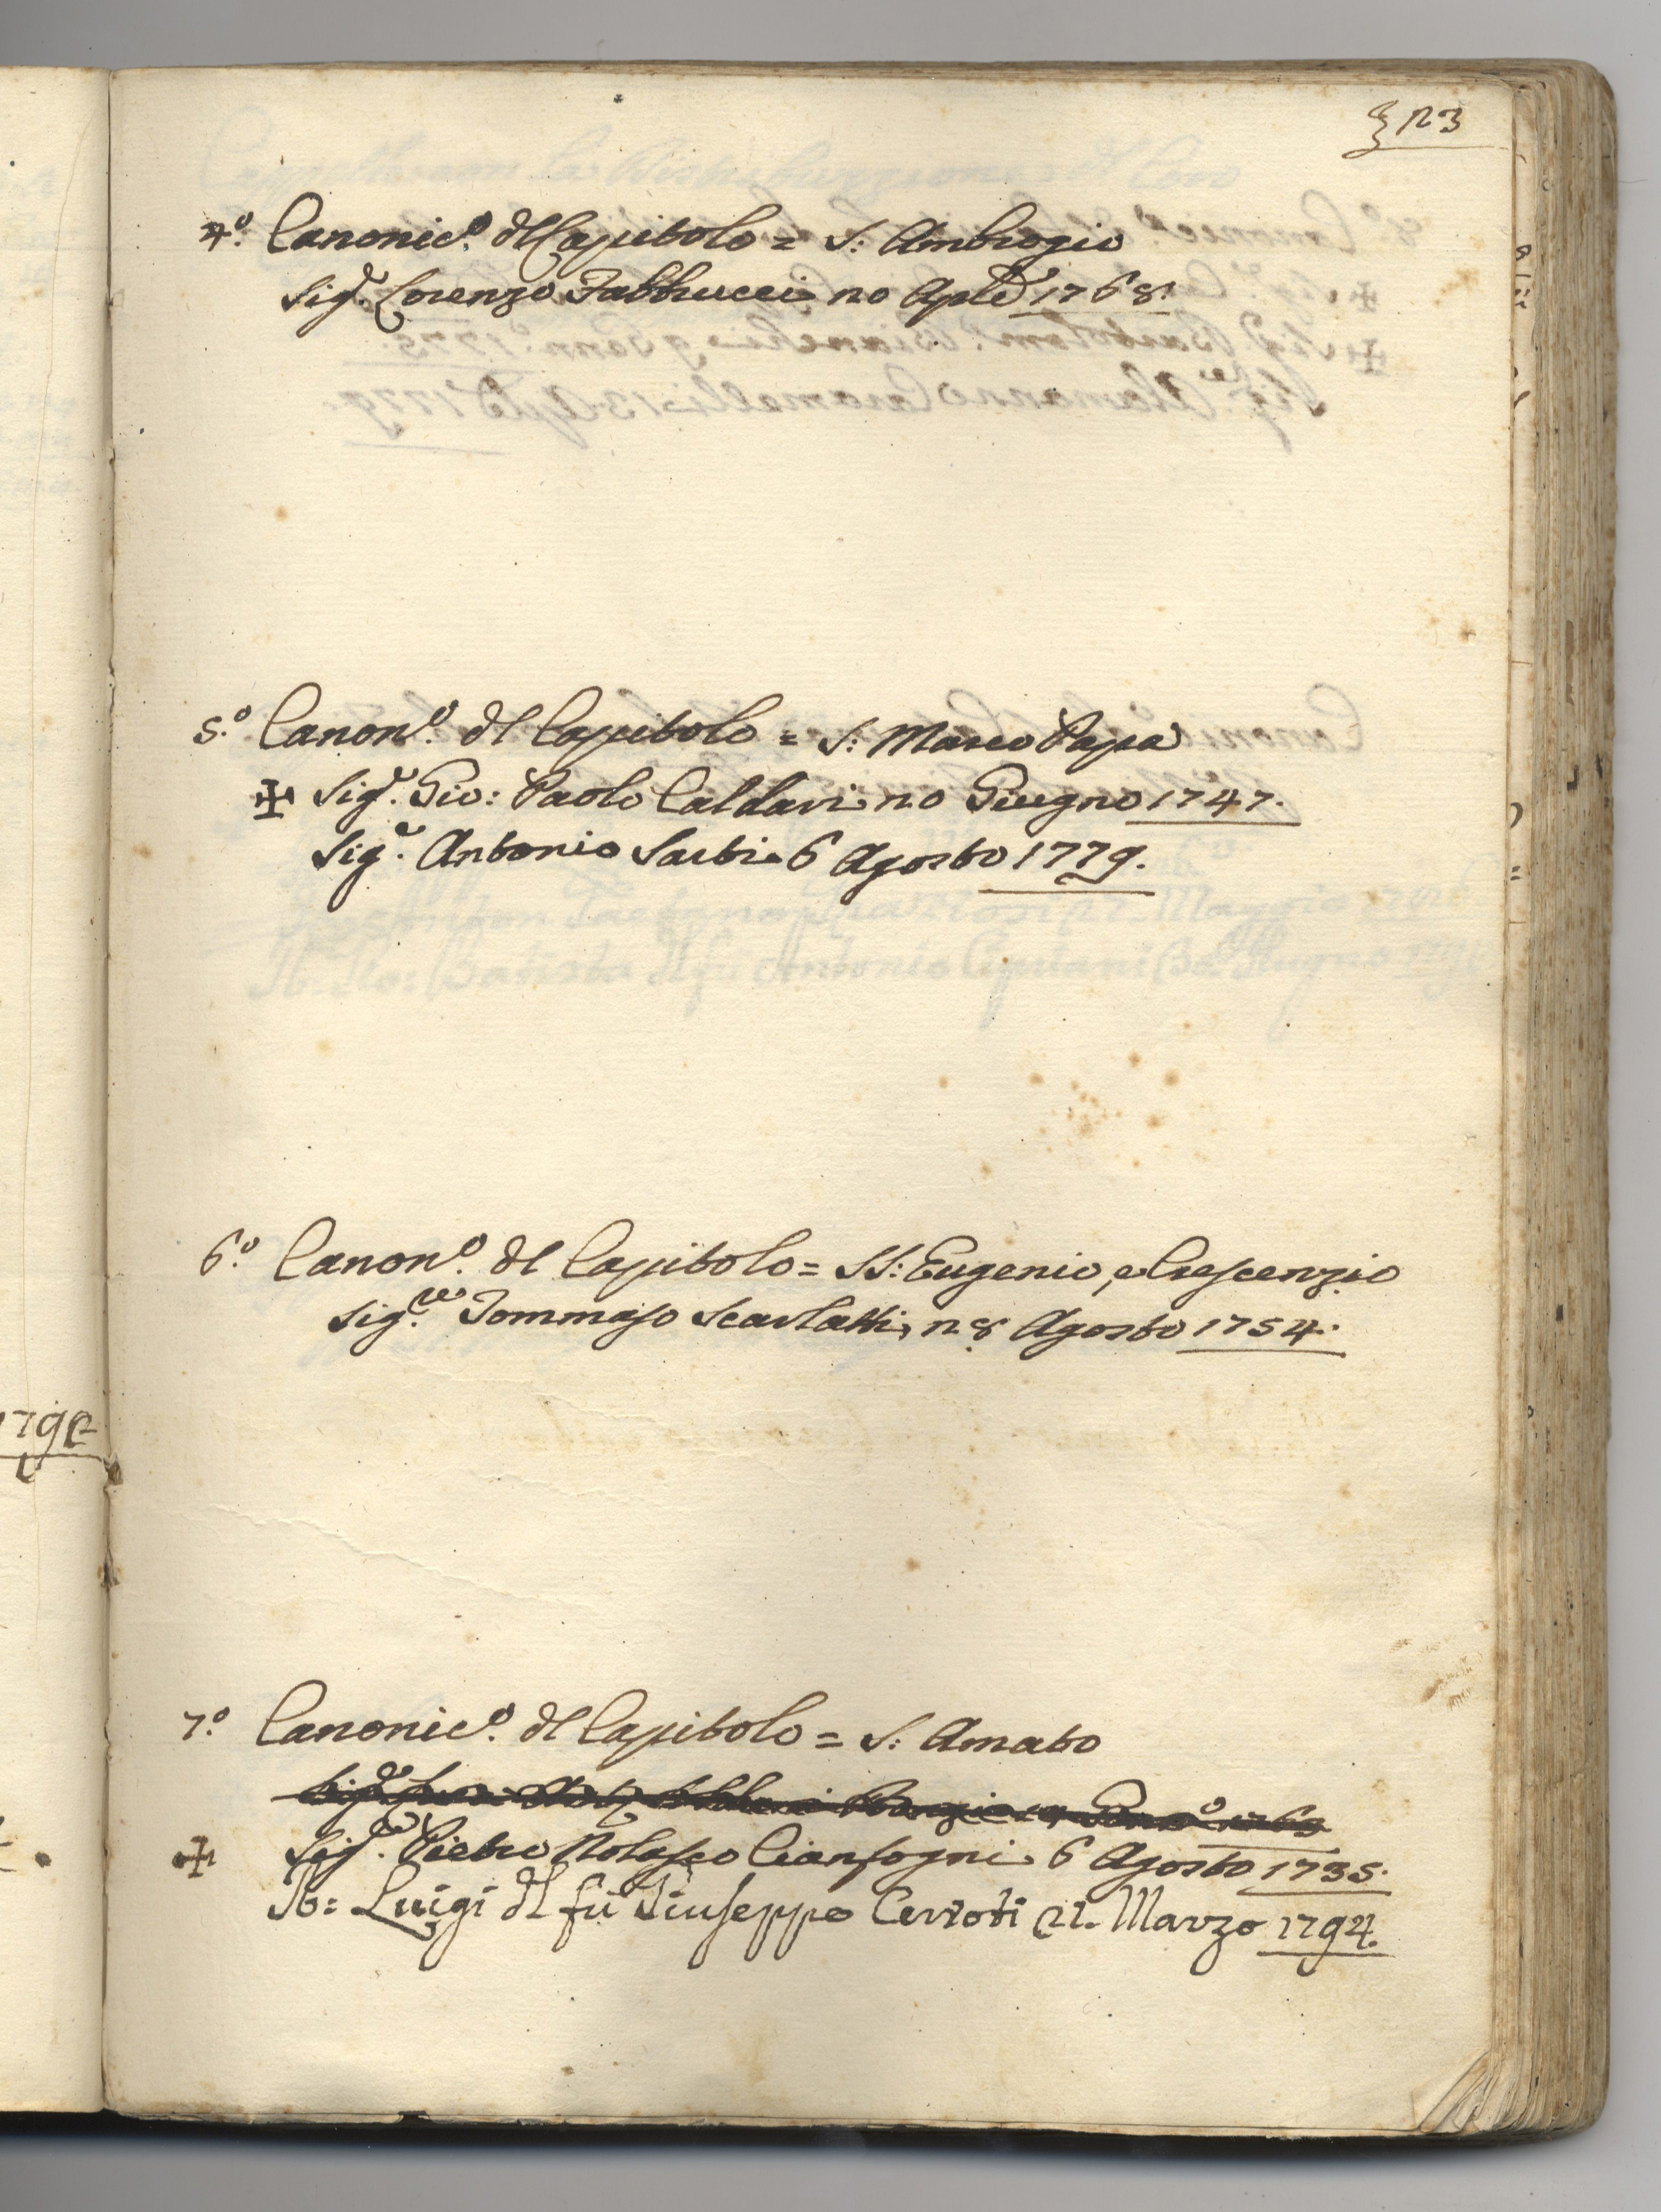 123
4.º Canonic.º dl Capitolo = S: Ambrogio
Sig.r Lorenzo Fabbrucci 20 Aple 1768.
5.º Canon.º dl Capitolo = S: Marco Papa
✠ Sig.r Gio: Paolo Caldari 20 Giugno 1747.
Sig.r Antonio Sarti 6 Agosto 1779.
6.º Canon.º dl Capitolo = SS: Eugenio, e Crescenzio
Sig.re Tommaso Scarlatti, 28 Agosto 1754.
7.º Canonic.º dl Capitolo = S: Amato
✠ Sig.r Pietro Nolasco Cianfogni 6 Agosto 1735.
Luigi dl fu Giuseppe Cerroti 21. Marzo 1794.